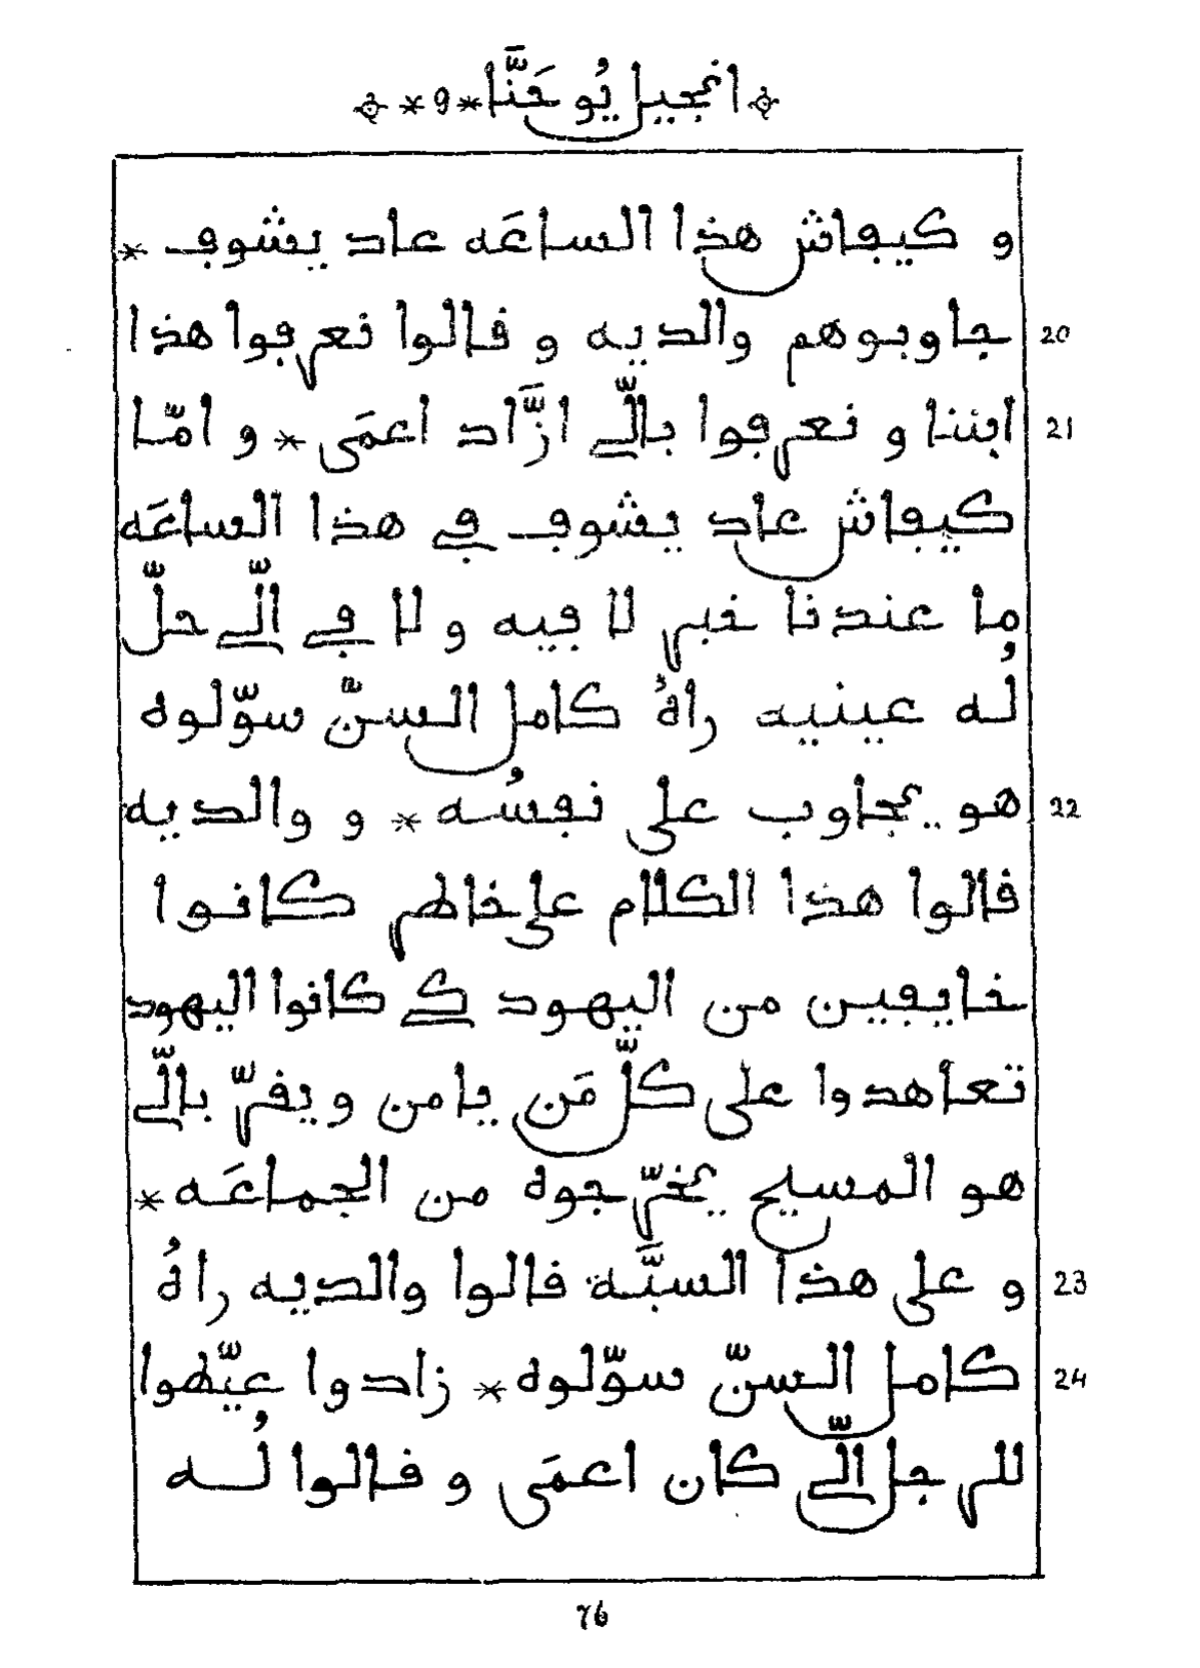 انجيل يُوحَنَّا * 9 *
و كيڢاش هذا الساعَه عاد يشوڢ *
20 جاوبوهم والديه و ڧالوا نعرڢوا هذا
21 ابننا و نعرڢوا بالّے ازَّاد اعمَى * و امّا
كيڢاش عاد يشوڢ ڢے هذا الساعَه
ما عندنا خبر لا ڢيه و لا ڢے الّے حلّ
لُه عينيه راهُ كامل السنّ سوّلوه
22 هو يجاوب على نڢسُه * و والديه
ڧالوا هذا الكلام على خاطر كانوا
خايڢين من اليهود كے كانوا اليهود
تعاهدوا على كلَّ مَن يامن و يڧرّ بالّے
هو المسيح يخرّجوه من الجماعَه *
23 و على هذا السبَّه ڧالوا والديه راهُ
24 كامل السنّ سوّلوه * زادوا عيّطوا
للرجل الّے كان اعمَى و ڧالوا لُه
76